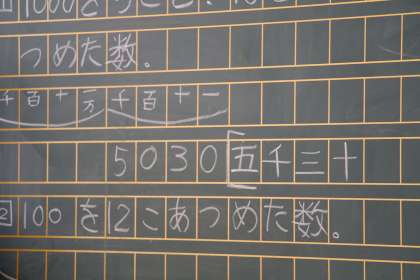 1000を
つめた数。
千百十一万千百十一
5030「五千三十
2 100を12こあつめた数。